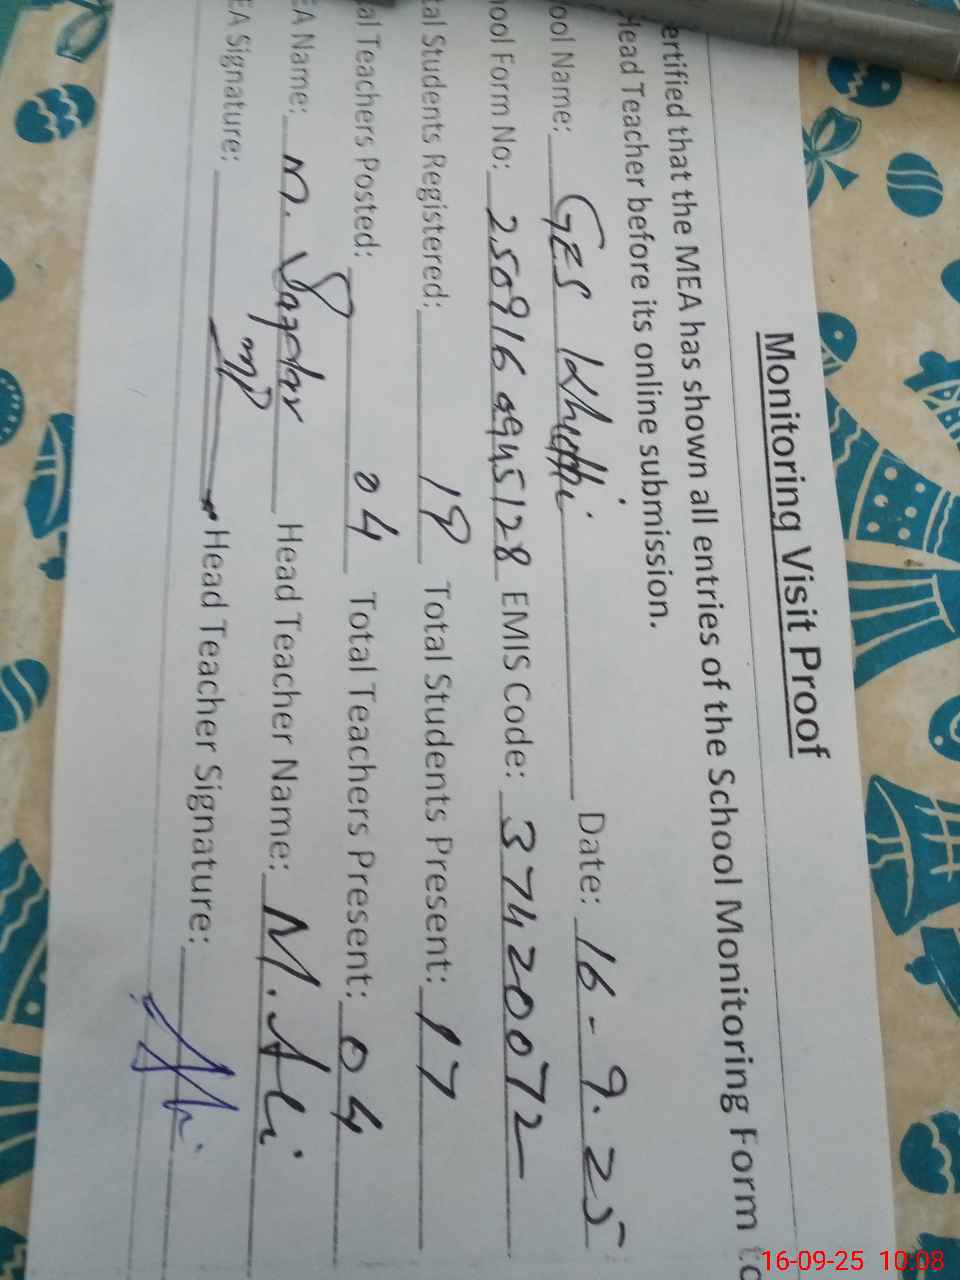 Monitoring Visit Proof
ertified that the MEA has shown all entries of the School Monitoring Form to
Head Teacher before its online submission.
ool Name: GES Khutthi Date: 16-9.25
hool Form No: 250916 9945128 EMIS Code: 37420072
tal Students Registered: 19 Total Students Present: 17
al Teachers Posted: 04 Total Teachers Present: 04
EA Name: M. Safdar Head Teacher Name: M. Ali
EA Signature: Head Teacher Signature:
16-09-25 10:08